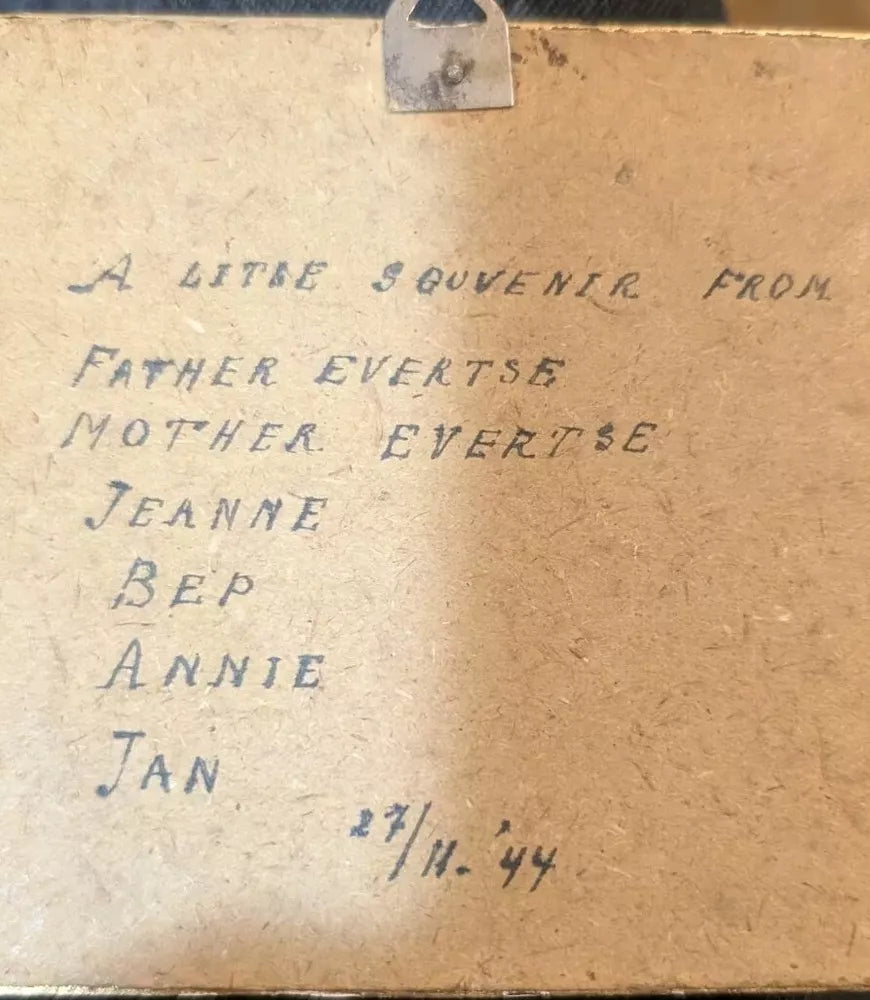 A LITLE SOUVENIR FROM
FATHER EVERTSE
MOTHER EVERTSE
JEANNE
BEP
ANNIE
JAN
27/11.'44